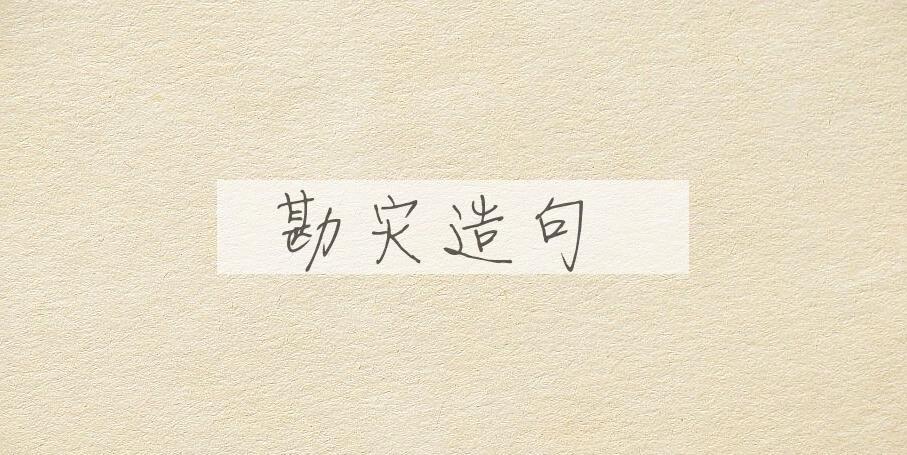 勘灾造句